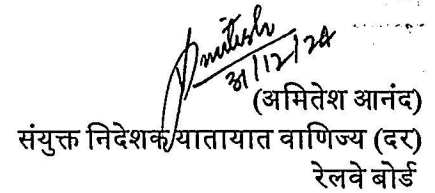 Amitesh
31/12/24
(अमितेश आनंद)
संयुक्त निदेशक यातायात वाणिज्य (दर)
रेलवे बोर्ड